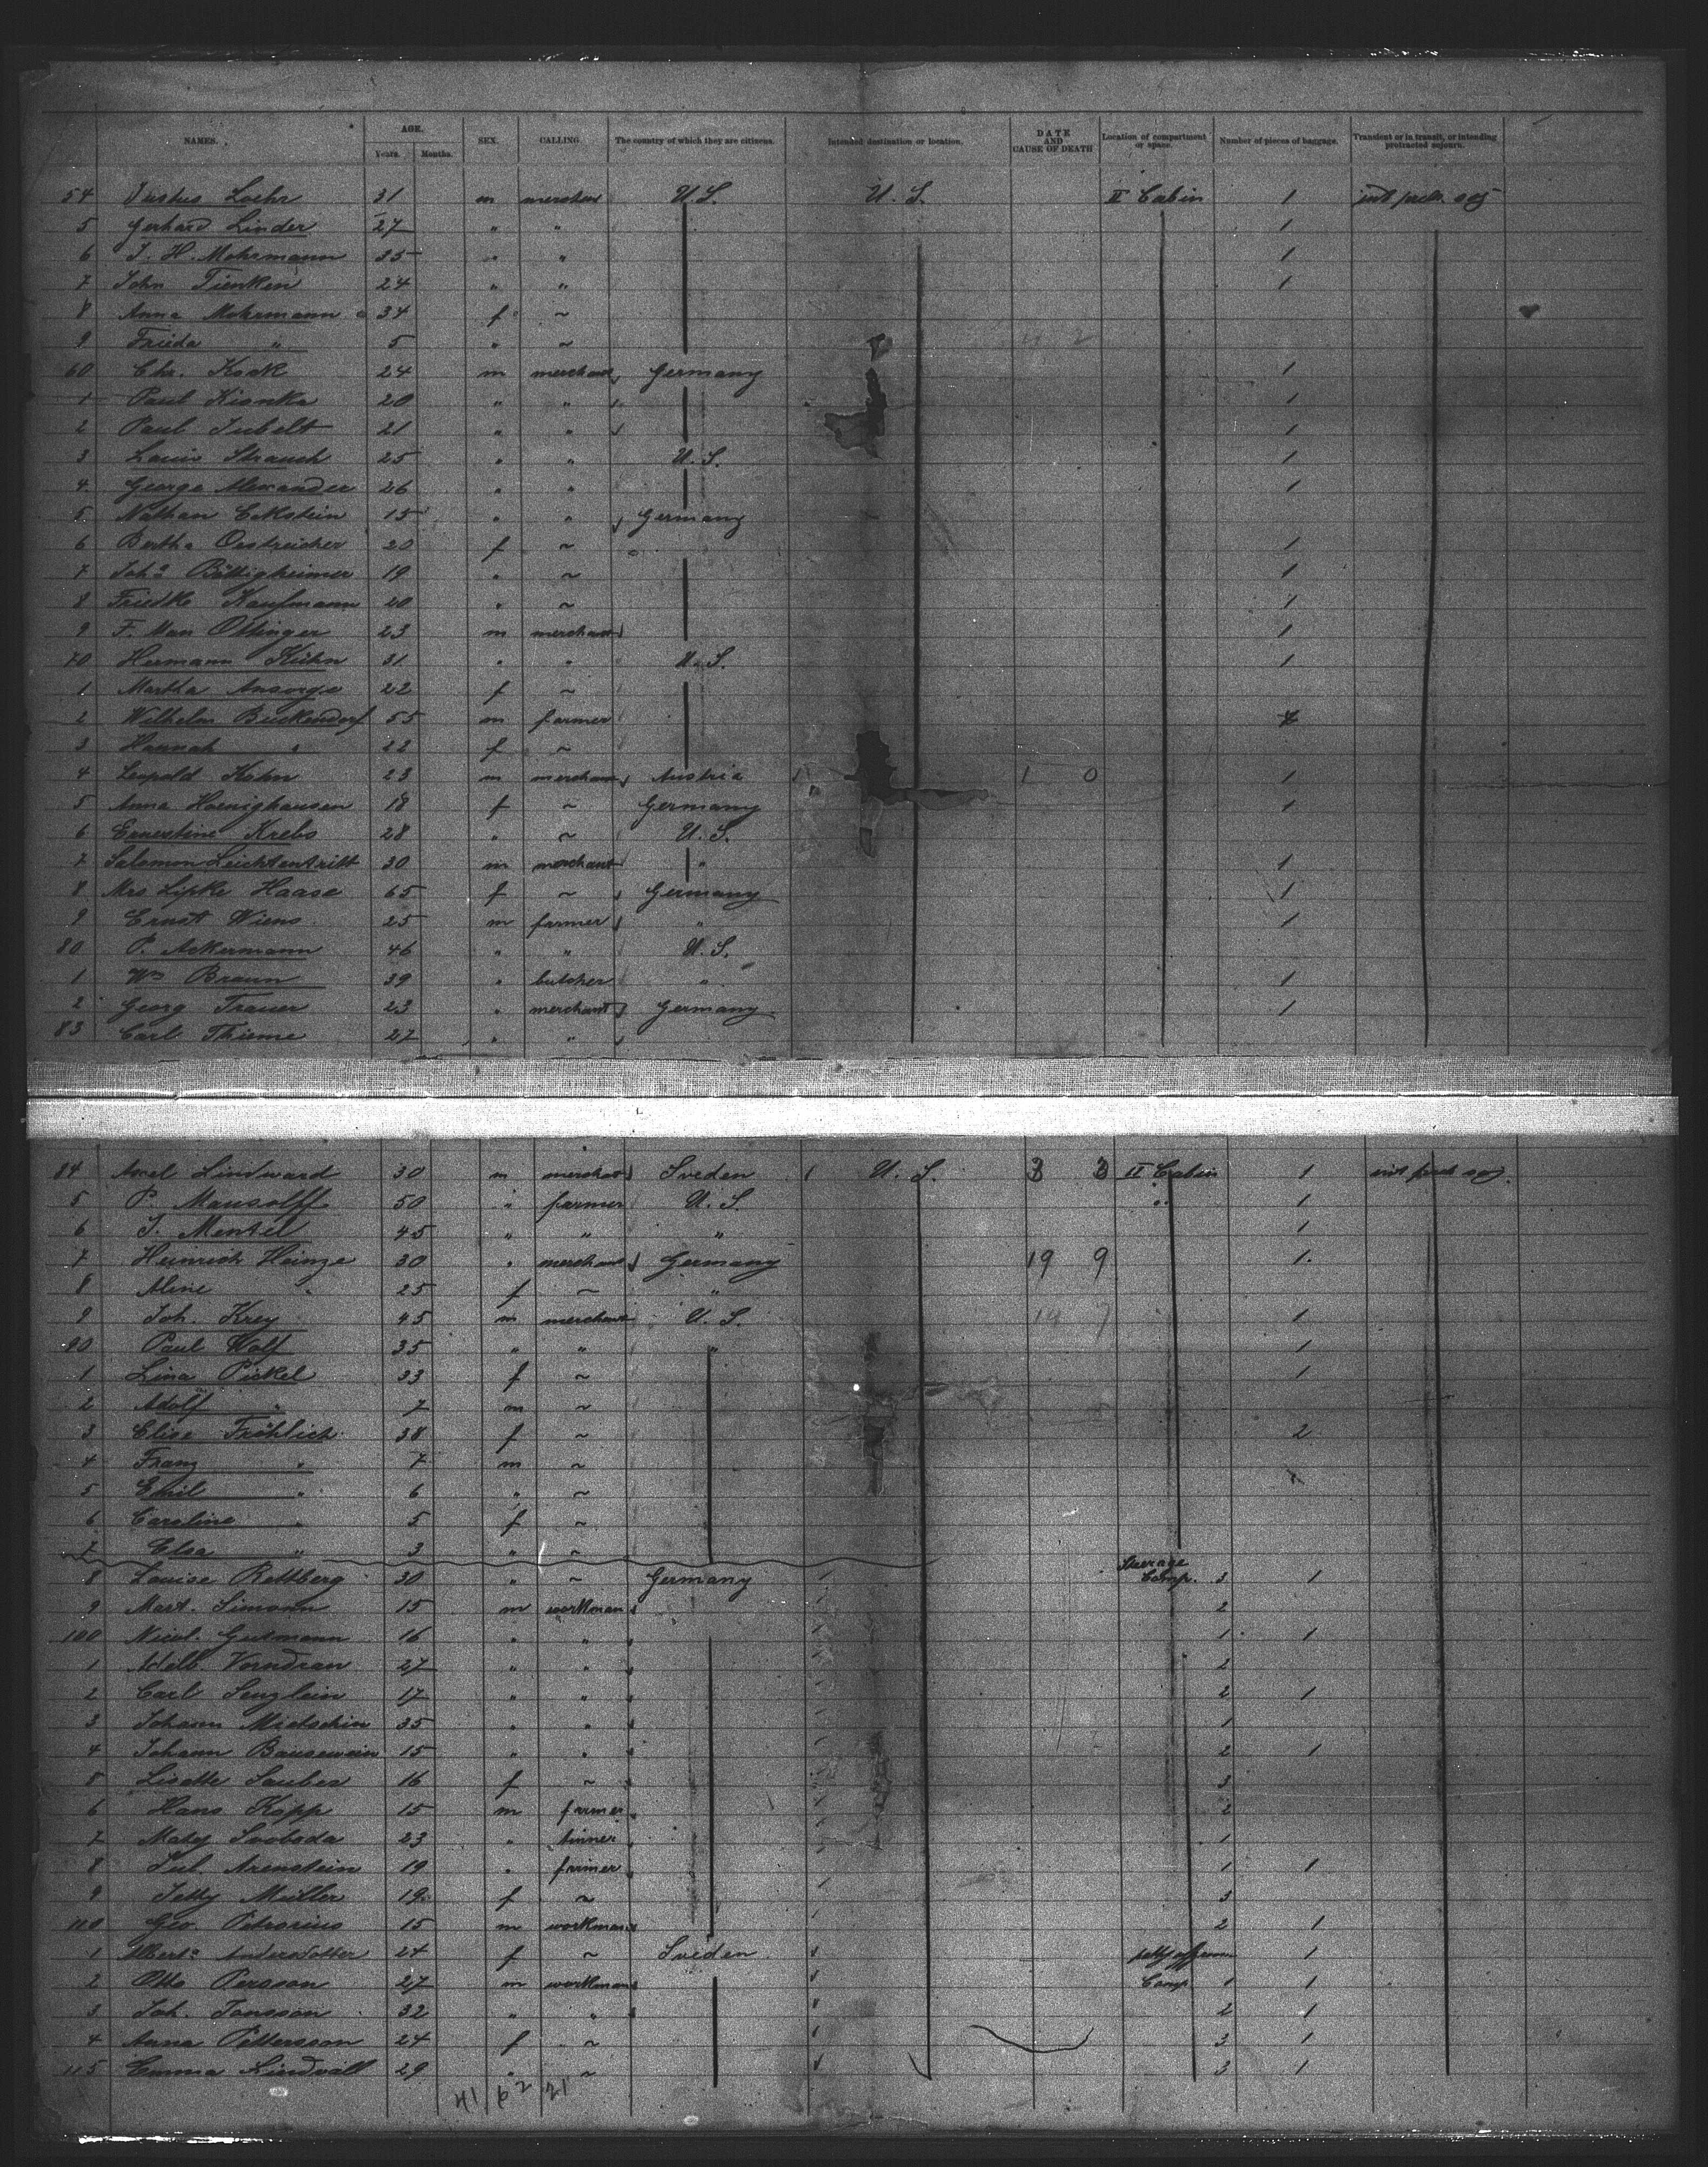 NAMES. AGE. SEX. CALLING. The country of which they are citizens. Intended destination or location. DATE AND CAUSE OF DEATH Location of compartment or space. Number of pieces of baggage. Transient or in transit, or intending protracted sojourn.
Years. Months.
54 Justus Loehr 31 m merchant U.S. U.S. II Cabin 1
5 Gerhard Linder 27 " " 1
6 J. H. Mohrmann 35 " " 1
7 John Tienken 24 " " 1
8 Anna Mohrmann 34 f ~
9 Frieda " 5 " ~
60 Chr. Kock 24 m merchant Germany 1
1 Paul Kionka 20 " " 1
2 Paul Jubelt 21 " " 1
3 Louis Strauch 25 " " U.S. 1
4 George Alexander 26 " " 1
5 Nathan Eckstein 15 " " Germany
6 Bertha Oestreicher 20 f ~ 1
7 Joha Bättigheimer 19 " ~ 1
8 Friedke Kaufmann 20 " ~ 1
9 F. Max Ottinger 23 m merchant 1
70 Hermann Kühn 31 " " U.S. 1
1 Martha Ansorge 22 f ~
2 Wilhelm Buckendorf 55 m farmer
3 Hannah " 22 f ~
4 Leopold Kohn 23 m merchant Austria 1 0 1
5 Anna Hoenighausen 18 f ~ Germany 1
6 Ernestine Krebs 28 " ~ U.S.
7 Salomon Leichtentritt 30 m merchant " 1
8 Mrs Lipke Haase 65 f ~ Germany 1
9 Ernst Wiens 25 m farmer " 1
80 P. Ackermann 46 " " U.S.
1 Wm Braun 39 " butcher " 1
2 Georg Trauer 23 " merchant Germany 1
83 Carl Thieme 27 " "
84 Axel Lindward 30 m merchant Sveden U.S. 3 3 II Cabin 1
5 P. Mansolff 50 " farmer U.S. " 1
6 J. Mentel 45 " " " 1
7 Heinrich Heinze 30 " merchant Germany 19 9 1
8 Aline " 25 f ~ "
9 Joh. Krey 45 m merchant U.S. 14 7 1
90 Paul Wolf 35 " " " 1
1 Lina Pickel 33 f ~ 1
2 Adolf " 7 m ~
3 Elise Fröhlich 38 f ~ 2
4 Franz " 7 m ~
5 Emil " 6 " ~
6 Caroline " 5 f ~
7 Elsa " 3 " ~
8 Louise Rettberg 30 " ~ Germany Steerage Comp. 3 1
9 Mart. Simonn 15 m workman 2
100 Nicol. Gutmann 16 " " 1 1
1 Adelb. Vorndran 27 " " 2
2 Carl Senglein 17 " " 2 1
3 Johann Mietschin 35 " " 1
4 Johann Bausewein 15 " " 2 1
5 Lisette Sauber 16 f ~ 3
6 Hans Kopp 15 m farmer 2
7 Matej Svoboda 23 " tinner 1
8 Jul. Arenstein 19 " farmer 1 1
9 Jetty Müller 19 f ~ 3
110 Geo. Petrosius 15 m workman 2 1
1 Albert. Andersdotter 24 f ~ Sveden 1
2 Otto Persson 27 m workman Comp. 1 1
3 Joh. Jonsson 32 " " 2 1
4 Anna Pettersson 24 f ~ 3 1
115 Emma Lindvall 29 " ~ 3 1
41 62 21